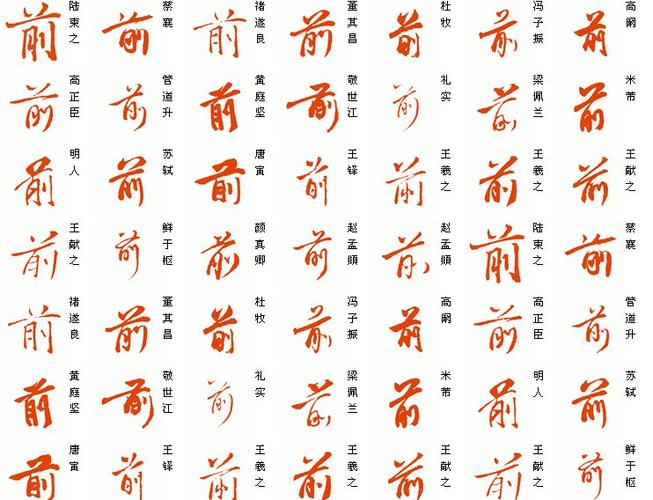 前 陆柬之 前 蔡襄 前 褚遂良 前 董其昌 前 杜牧 前 冯子振 前 高闲
前 高正臣 前 管道升 前 黄庭坚 前 敬世江 前 礼实 前 梁佩兰 前 米芾
前 明人 前 苏轼 前 唐寅 前 王铎 前 王羲之 前 王羲之 前 王献之
前 王献之 前 鲜于枢 前 颜真卿 前 赵孟頫 前 赵孟頫 前 陆柬之 前 蔡襄
前 褚遂良 前 董其昌 前 杜牧 前 冯子振 前 高闲 前 高正臣 前 管道升
前 黄庭坚 前 敬世江 前 礼实 前 梁佩兰 前 米芾 前 明人 前 苏轼
前 唐寅 前 王铎 前 王羲之 前 王羲之 前 王献之 前 王献之 前 鲜于枢